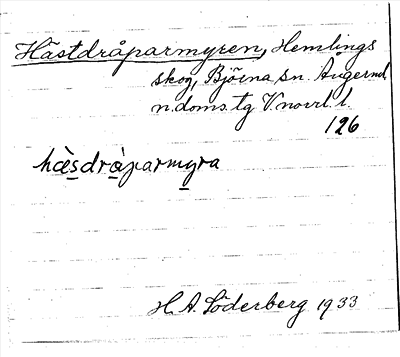 Hästdråparmyren, Hemlings
skog, Björna sn. Ångerml.
n. doms. tg Vnorrl. l.
126
hæ̀sdrå̀parmyra
H. A. Söderberg 1933